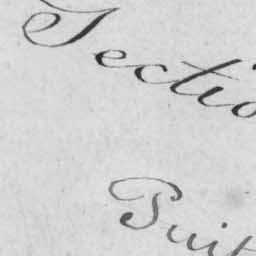 Sectio
Suit